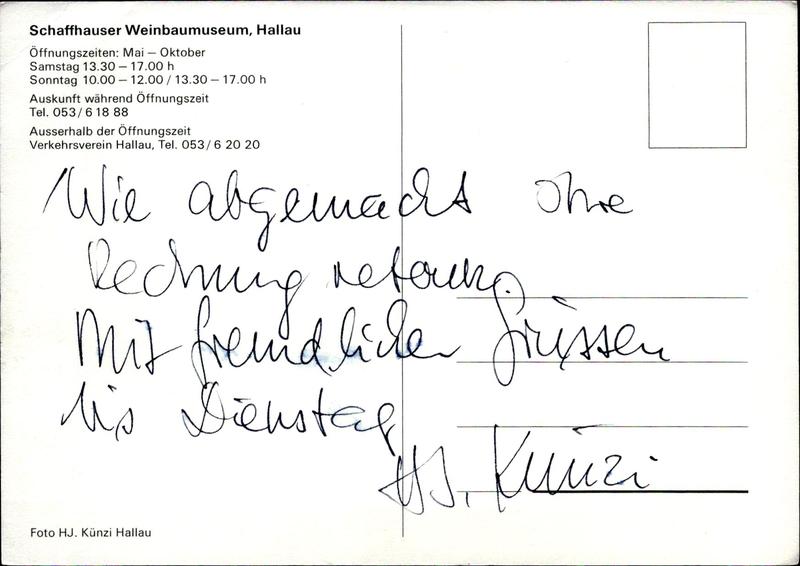 Schaffhauser Weinbaumuseum, Hallau
Öffnungszeiten: Mai – Oktober
Samstag 13.30 – 17.00 h
Sonntag 10.00 – 12.00 / 13.30 – 17.00 h
Auskunft während Öffnungszeit
Tel. 053/6 18 88
Ausserhalb der Öffnungszeit
Verkehrsverein Hallau, Tel. 053/6 20 20
Wie abgemacht ohne
Rechnung retour.
Mit freundlichen Grüssen
bis Dienstag
HJ. Künzi
Foto HJ. Künzi Hallau